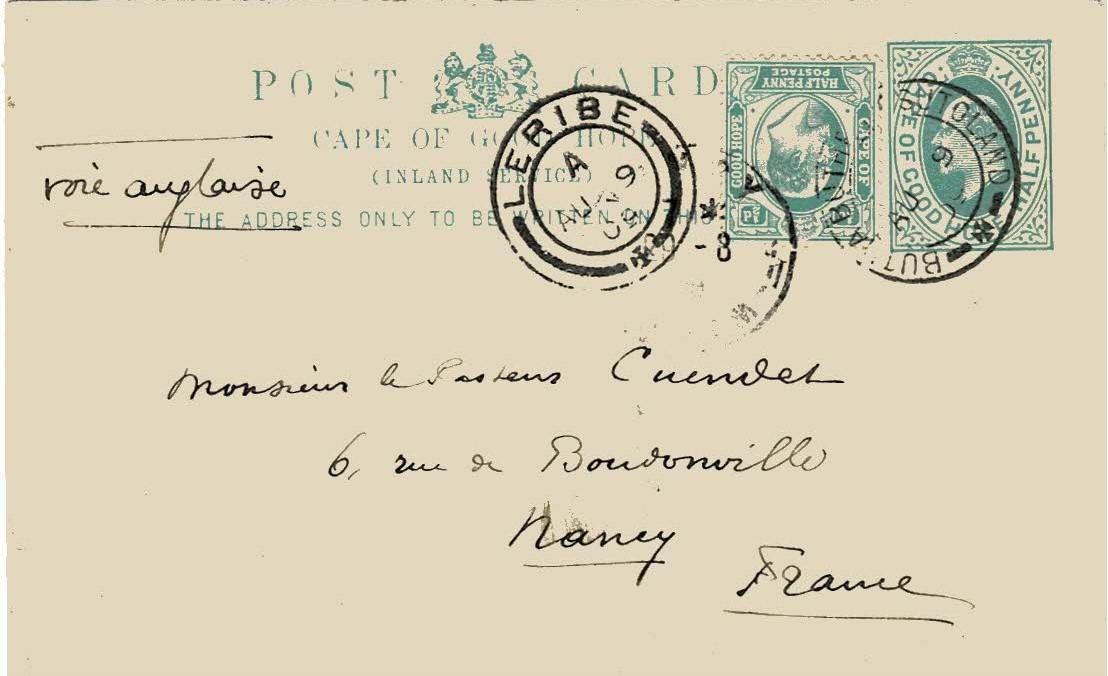 POST CARD
CAPE OF GOOD HOPE
(INLAND SERVICE)
THE ADDRESS ONLY TO BE WRITTEN ON THIS
voie anglaise
LERIBE
A
AU 9
09
HALF PENNY
POSTAGE
CAPE OF
GOOD HOPE
½Pᵈ
CAPE OF GOOD HOPE
HALF PENNY
-8
Monsieur le Pasteur Cuendet
6, rue de Boudonville
Nancy
France